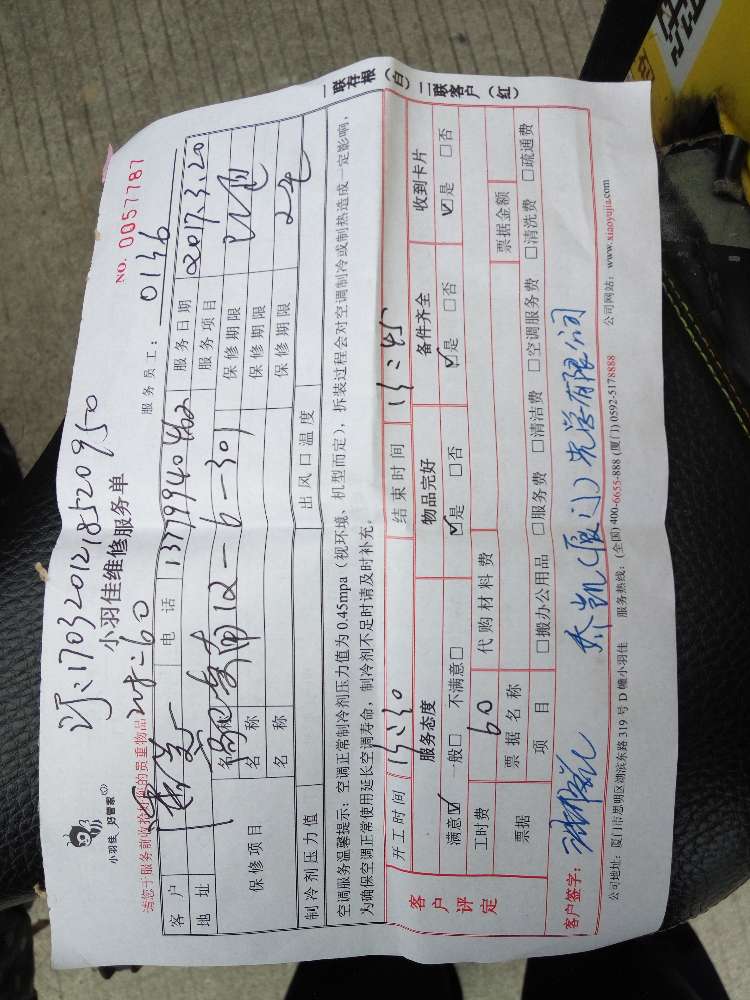 订：1703201218520950
NO. 0057787
小羽佳 好管家
小羽佳维修服务单
请您于服务前收拾好您的贵重物品
服务员工：0136
客户 电话 13779940462 服务日期 2017.3.20
地址 12-6-301 服务项目
保修项目
名称 保修期限
名称 保修期限
名称 保修期限
制冷剂压力值 出风口温度
空调服务温馨提示：空调正常制冷剂压力值为 0.45mpa（视环境、机型而定），拆装过程会对空调制冷或制热造成一定影响，
为确保空调正常使用延长空调寿命，制冷剂不足时请及时补充。
开工时间 15:30 结束时间 15:45
客户评定
服务态度 物品完好 备件齐全 收到卡片
满意☑ 一般□ 不满意□ ☑是 □否 ☑是 □否 ☑是 □否
工时费 60 代购材料费
票据 票据名称 票据金额
项目 □搬办公用品 □服务费 □清洁费 □空调服务费 □清洗费 □疏通费
客户签字： 乔凯（厦门）光学有限公司
公司地址：厦门市思明区湖滨东路 319 号 D 幢小羽佳 服务热线：（全国）400-6655-888 (厦门) 0592-5178888 公司网站：www.xiaoyujia.com
一联存根（白） 二联客户（红）